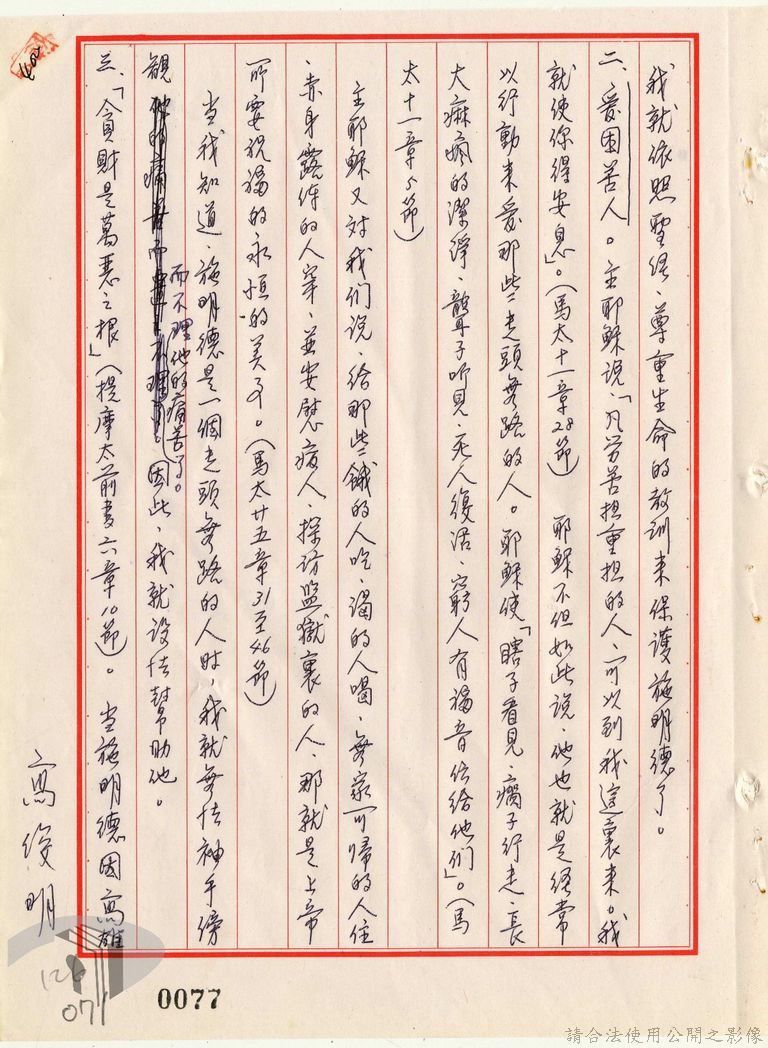 我就依照聖经、尊重生命的教訓来保護施明德了。
二、愛困苦人。主耶穌说、「凡劳苦担重担的人、可以到我這裏来。我
就使你得安息」。(馬太十一章28節) 耶穌不但如此说、他也就是经常
以行動来爱那些走頭無路的人。耶穌使「瞎子看見、瘸子行走、長
大痲瘋的潔淨、聾子听見、死人復活、窮人有福音伝给他們」。(馬
太十一章5節)
主耶穌又对我们说、给那些餓的人吃、渴的人喝、無家可帰的人住
、赤身露体的人穿、並安慰病人、探访監獄裏的人、那就是上帝
所要祝福的永恒的美事。(馬太廿五章31至46節)
当我知道、施明德是一個走頭無路的人时、我就無法袖手傍
觀而不理他的痛苦了。因此、我就设法幫助他。
三、「貪財是萬惡之根」(提摩太前書六章10節)。当施明德因高雄
高俊明
126
071
0077
請合法使用公開之影像